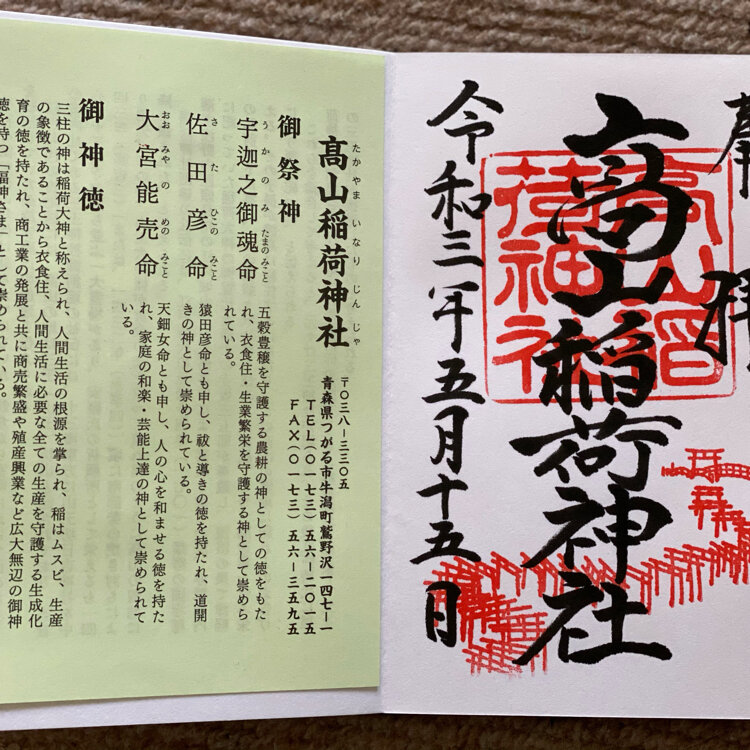 奉拝
髙山稲荷神社
高山稲
荷神社
令和三年五月十五日
たかやま いなり じんじゃ
髙山稲荷神社
〒〇三八-三三〇五
青森県つがる市牛潟町鷲野沢一四七-一
TEL(〇一七三)五六-二〇一五
FAX(〇一七三)五六-三五九五
御祭神
うかのみたまのみこと
宇迦之御魂命
五穀豊穣を守護する農耕の神としての徳をもた
れ、衣食住・生業繁栄を守護する神として崇めら
れている。
さたひこのみこと
佐田彦命
猿田彦命とも申し、祓と導きの徳を持たれ、道開
きの神として崇められている。
おおみやのめのみこと
大宮能売命
天鈿女命とも申し、人の心を和ませる徳を持た
れ、家庭の和楽・芸能上達の神として崇められて
いる。
御神徳
三柱の神は稲荷大神と称えられ、人間生活の根源を掌られ、稲はムスビ、生産
の象徴であることから衣食住、人間生活に必要な全ての生産を守護する生成化
育の徳を持たれ、商工業の発展と共に商売繁盛や殖産興業など広大無辺の御神
徳を持つ「福神さま」として崇められている。